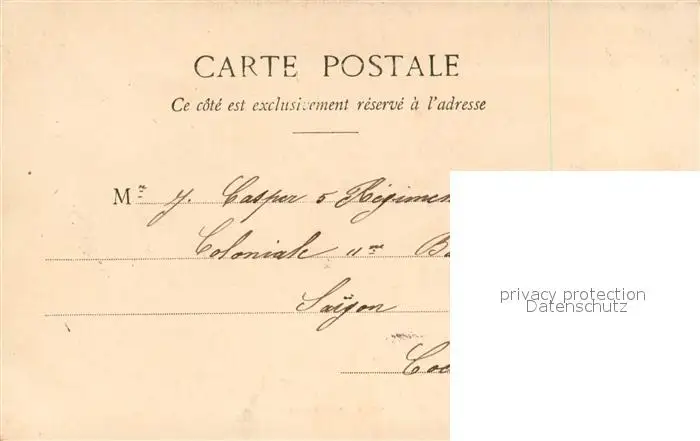 CARTE POSTALE
Ce côté est exclusivement réservé à l'adresse
Mr J. Casper 5 Régimen
Coloniale 11me B
Saïgon
Coc
privacy protection
Datenschutz